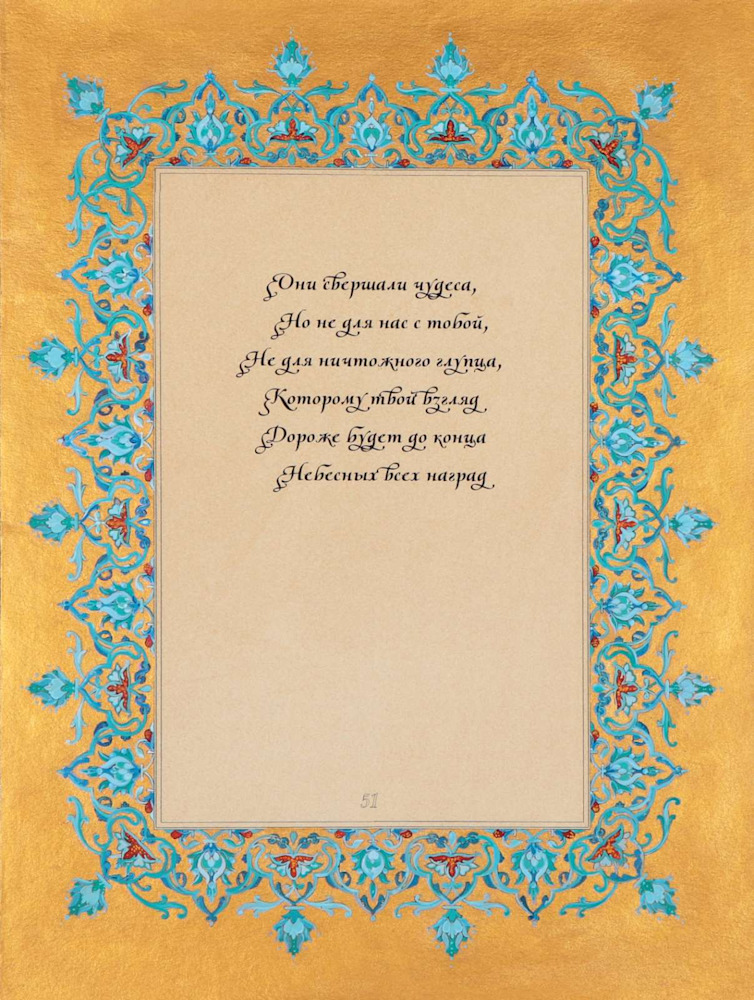 Они свершали чудеса,
Но не для нас с тобой,
Не для ничтожного глупца,
Которому твой взгляд
Дороже будет до конца
Небесных всех наград
51